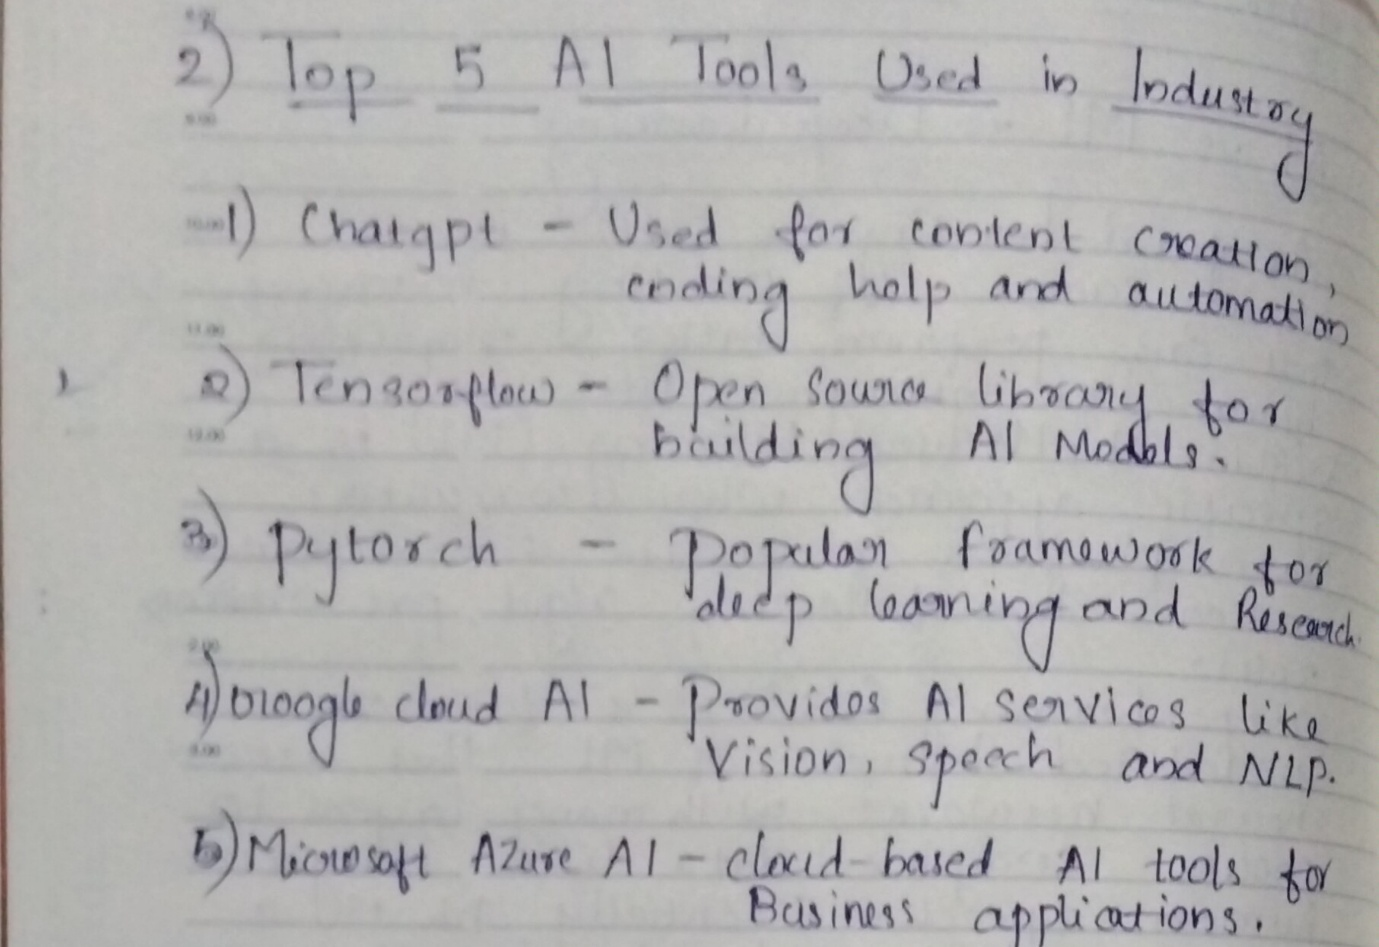 2) Top 5 AI Tools Used in Industry
1) Chatgpt - Used for content creation,
coding help and automation
2) Tensorflow - Open source library for
building AI Models.
3) Pytorch - Popular framework for
deep learning and Research.
4) Google cloud AI - Provides AI services like
Vision, speech and NLP.
5) Microsoft Azure AI - cloud-based AI tools for
Business applications.